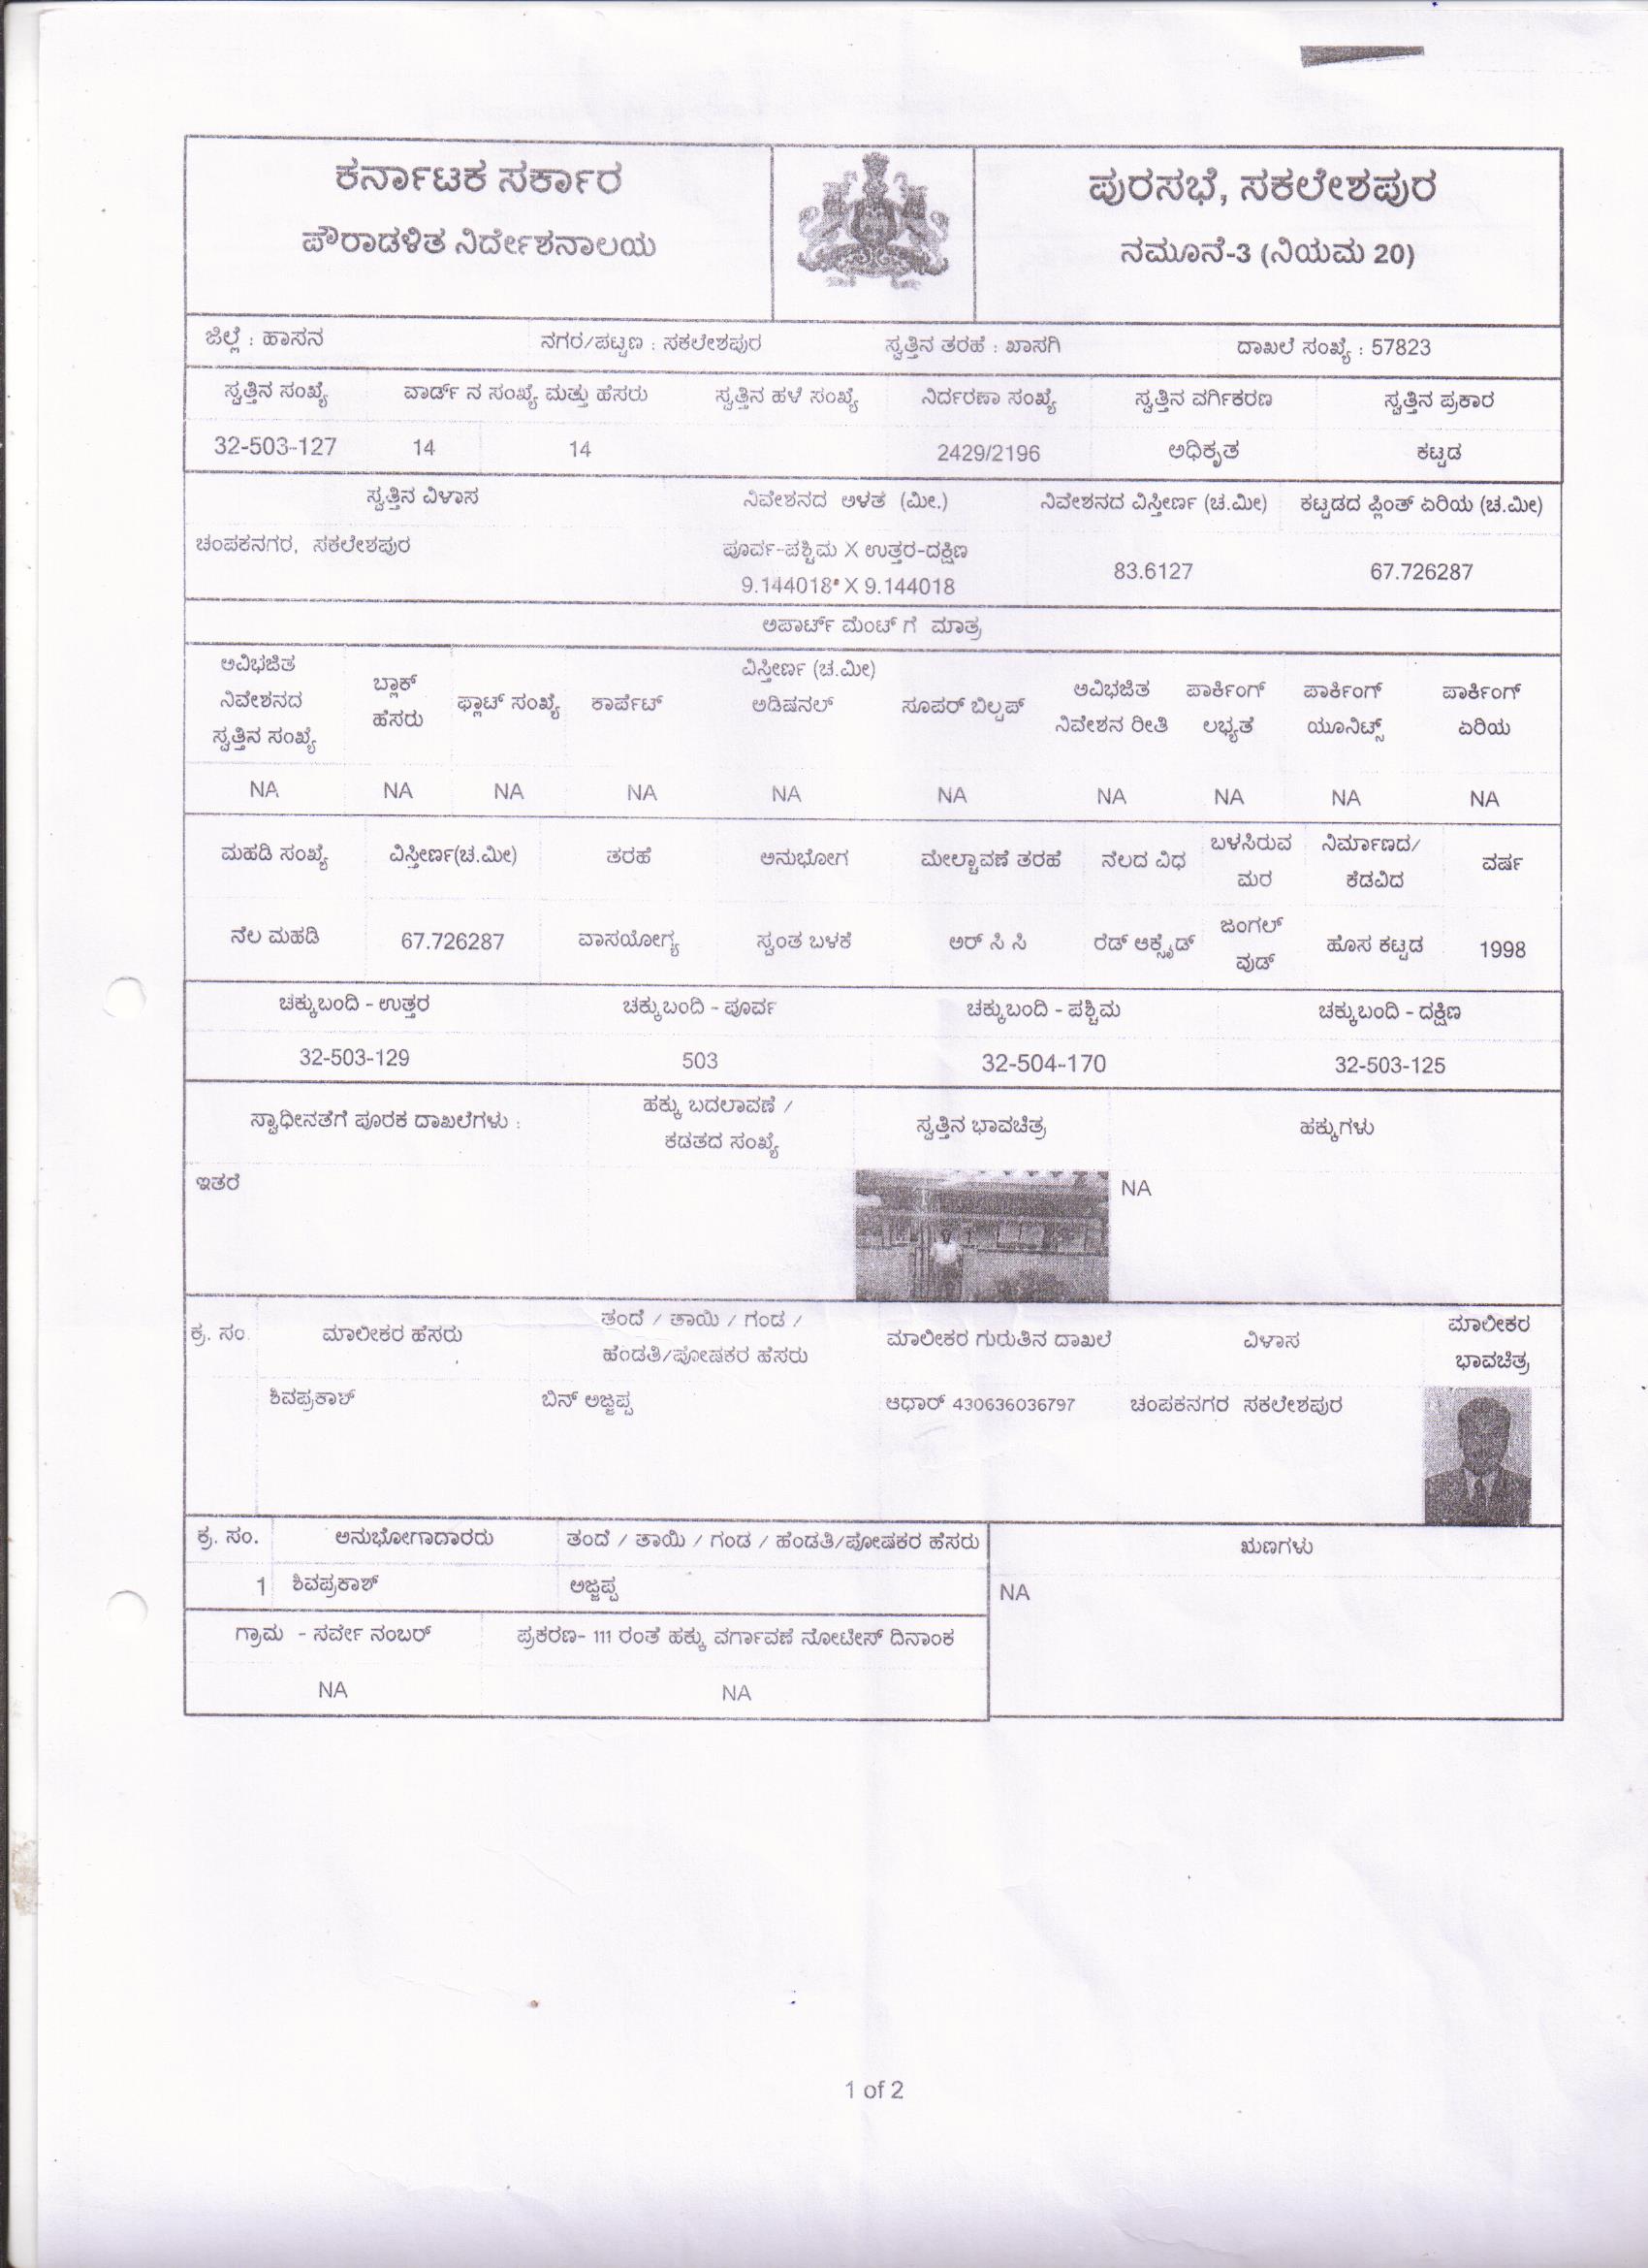 ಕರ್ನಾಟಕ ಸರ್ಕಾರ
ಪೌರಾಡಳಿತ ನಿರ್ದೇಶನಾಲಯ
ಪುರಸಭೆ, ಸಕಲೇಶಪುರ
ನಮೂನೆ-3 (ನಿಯಮ 20)
ಜಿಲ್ಲೆ : ಹಾಸನ ನಗರ/ಪಟ್ಟಣ : ಸಕಲೇಶಪುರ ಸ್ವತ್ತಿನ ತರಹೆ : ಖಾಸಗಿ ದಾಖಲೆ ಸಂಖ್ಯೆ : 57823
ಸ್ವತ್ತಿನ ಸಂಖ್ಯೆ ವಾರ್ಡ್ ನ ಸಂಖ್ಯೆ ಮತ್ತು ಹೆಸರು ಸ್ವತ್ತಿನ ಹಳೆ ಸಂಖ್ಯೆ ನಿರ್ದರಣಾ ಸಂಖ್ಯೆ ಸ್ವತ್ತಿನ ವರ್ಗಿಕರಣ ಸ್ವತ್ತಿನ ಪ್ರಕಾರ
32-503-127 14 14 2429/2196 ಅಧಿಕೃತ ಕಟ್ಟಡ
ಸ್ವತ್ತಿನ ವಿಳಾಸ ನಿವೇಶನದ ಅಳತೆ (ಮೀ.) ನಿವೇಶನದ ವಿಸ್ತೀರ್ಣ (ಚ.ಮೀ) ಕಟ್ಟಡದ ಪ್ಲಿಂತ್ ಏರಿಯ (ಚ.ಮೀ)
ಚಂಪಕನಗರ, ಸಕಲೇಶಪುರ ಪೂರ್ವ-ಪಶ್ಚಿಮ X ಉತ್ತರ-ದಕ್ಷಿಣ
9.144018 X 9.144018 83.6127 67.726287
ಅಪಾರ್ಟ್ ಮೆಂಟ್ ಗೆ ಮಾತ್ರ
ಅವಿಭಜಿತ ನಿವೇಶನದ ಸ್ವತ್ತಿನ ಸಂಖ್ಯೆ ಬ್ಲಾಕ್ ಹೆಸರು ಫ್ಲಾಟ್ ಸಂಖ್ಯೆ ಕಾರ್ಪೆಟ್ ವಿಸ್ತೀರ್ಣ (ಚ.ಮೀ) ಅಡಿಷನಲ್ ಸೂಪರ್ ಬಿಲ್ಟಪ್ ಅವಿಭಜಿತ ನಿವೇಶನ ರೀತಿ ಪಾರ್ಕಿಂಗ್ ಲಭ್ಯತೆ ಪಾರ್ಕಿಂಗ್ ಯೂನಿಟ್ಸ್ ಪಾರ್ಕಿಂಗ್ ಏರಿಯ
NA NA NA NA NA NA NA NA NA NA
ಮಹಡಿ ಸಂಖ್ಯೆ ವಿಸ್ತೀರ್ಣ(ಚ.ಮೀ) ತರಹೆ ಅನುಭೋಗ ಮೇಲ್ಚಾವಣೆ ತರಹೆ ನೆಲದ ವಿಧ ಬಳಸಿರುವ ಮರ ನಿರ್ಮಾಣದ/ ಕೆಡವಿದ ವರ್ಷ
ನೆಲ ಮಹಡಿ 67.726287 ವಾಸಯೋಗ್ಯ ಸ್ವಂತ ಬಳಕೆ ಆರ್ ಸಿ ಸಿ ರೆಡ್ ಆಕ್ಸೈಡ್ ಜಂಗಲ್ ವುಡ್ ಹೊಸ ಕಟ್ಟಡ 1998
ಚಕ್ಕುಬಂದಿ - ಉತ್ತರ ಚಕ್ಕುಬಂದಿ - ಪೂರ್ವ ಚಕ್ಕುಬಂದಿ - ಪಶ್ಚಿಮ ಚಕ್ಕುಬಂದಿ - ದಕ್ಷಿಣ
32-503-129 503 32-504-170 32-503-125
ಸ್ವಾಧೀನತೆಗೆ ಪೂರಕ ದಾಖಲೆಗಳು : ಹಕ್ಕು ಬದಲಾವಣೆ / ಕಡತದ ಸಂಖ್ಯೆ ಸ್ವತ್ತಿನ ಭಾವಚಿತ್ರ ಹಕ್ಕುಗಳು
ಇತರೆ NA
ಕ್ರ. ಸಂ. ಮಾಲೀಕರ ಹೆಸರು ತಂದೆ / ತಾಯಿ / ಗಂಡ / ಹೆಂಡತಿ/ಪೋಷಕರ ಹೆಸರು ಮಾಲೀಕರ ಗುರುತಿನ ದಾಖಲೆ ವಿಳಾಸ ಮಾಲೀಕರ ಭಾವಚಿತ್ರ
ಶಿವಪ್ರಕಾಶ್ ಬಿನ್ ಅಜ್ಜಪ್ಪ ಆಧಾರ್ 430636036797 ಚಂಪಕನಗರ ಸಕಲೇಶಪುರ
ಕ್ರ. ಸಂ. ಅನುಭೋಗಾದಾರರು ತಂದೆ / ತಾಯಿ / ಗಂಡ / ಹೆಂಡತಿ/ಪೋಷಕರ ಹೆಸರು ಋಣಗಳು
1 ಶಿವಪ್ರಕಾಶ್ ಅಜ್ಜಪ್ಪ NA
ಗ್ರಾಮ - ಸರ್ವೇ ನಂಬರ್ ಪ್ರಕರಣ- 111 ರಂತೆ ಹಕ್ಕು ವರ್ಗಾವಣೆ ನೋಟೀಸ್ ದಿನಾಂಕ
NA NA
1 of 2